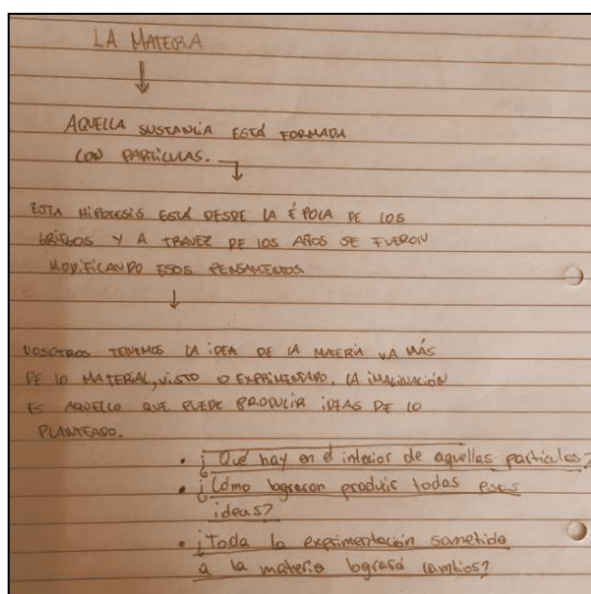 LA MATERIA
AQUELLA SUSTANCIA ESTÁ FORMADA
CON PARTÍCULAS.
ESTA HIPOTESIS ESTÁ DESDE LA ÉPOCA DE LOS
GRIEGOS Y A TRAVEZ DE LOS AÑOS SE FUERON
MODIFICANDO ESOS PENSAMIENTOS.
NOSOTROS TENEMOS LA IDEA DE LA MATERIA VA MÁS
DE LO MATERIAL, VISTO O EXPRIMENTADO. LA IMAGINACIÓN
ES AQUELLO QUE PUEDE PRODUCIR IDEAS DE LO
PLANTEADO.
• ¿Qué hay en el interior de aquellas particulas?
• ¿Cómo lograron producir todas esas
ideas?
• ¿Toda la exprimentación sometida
a la materia logrará cambios?